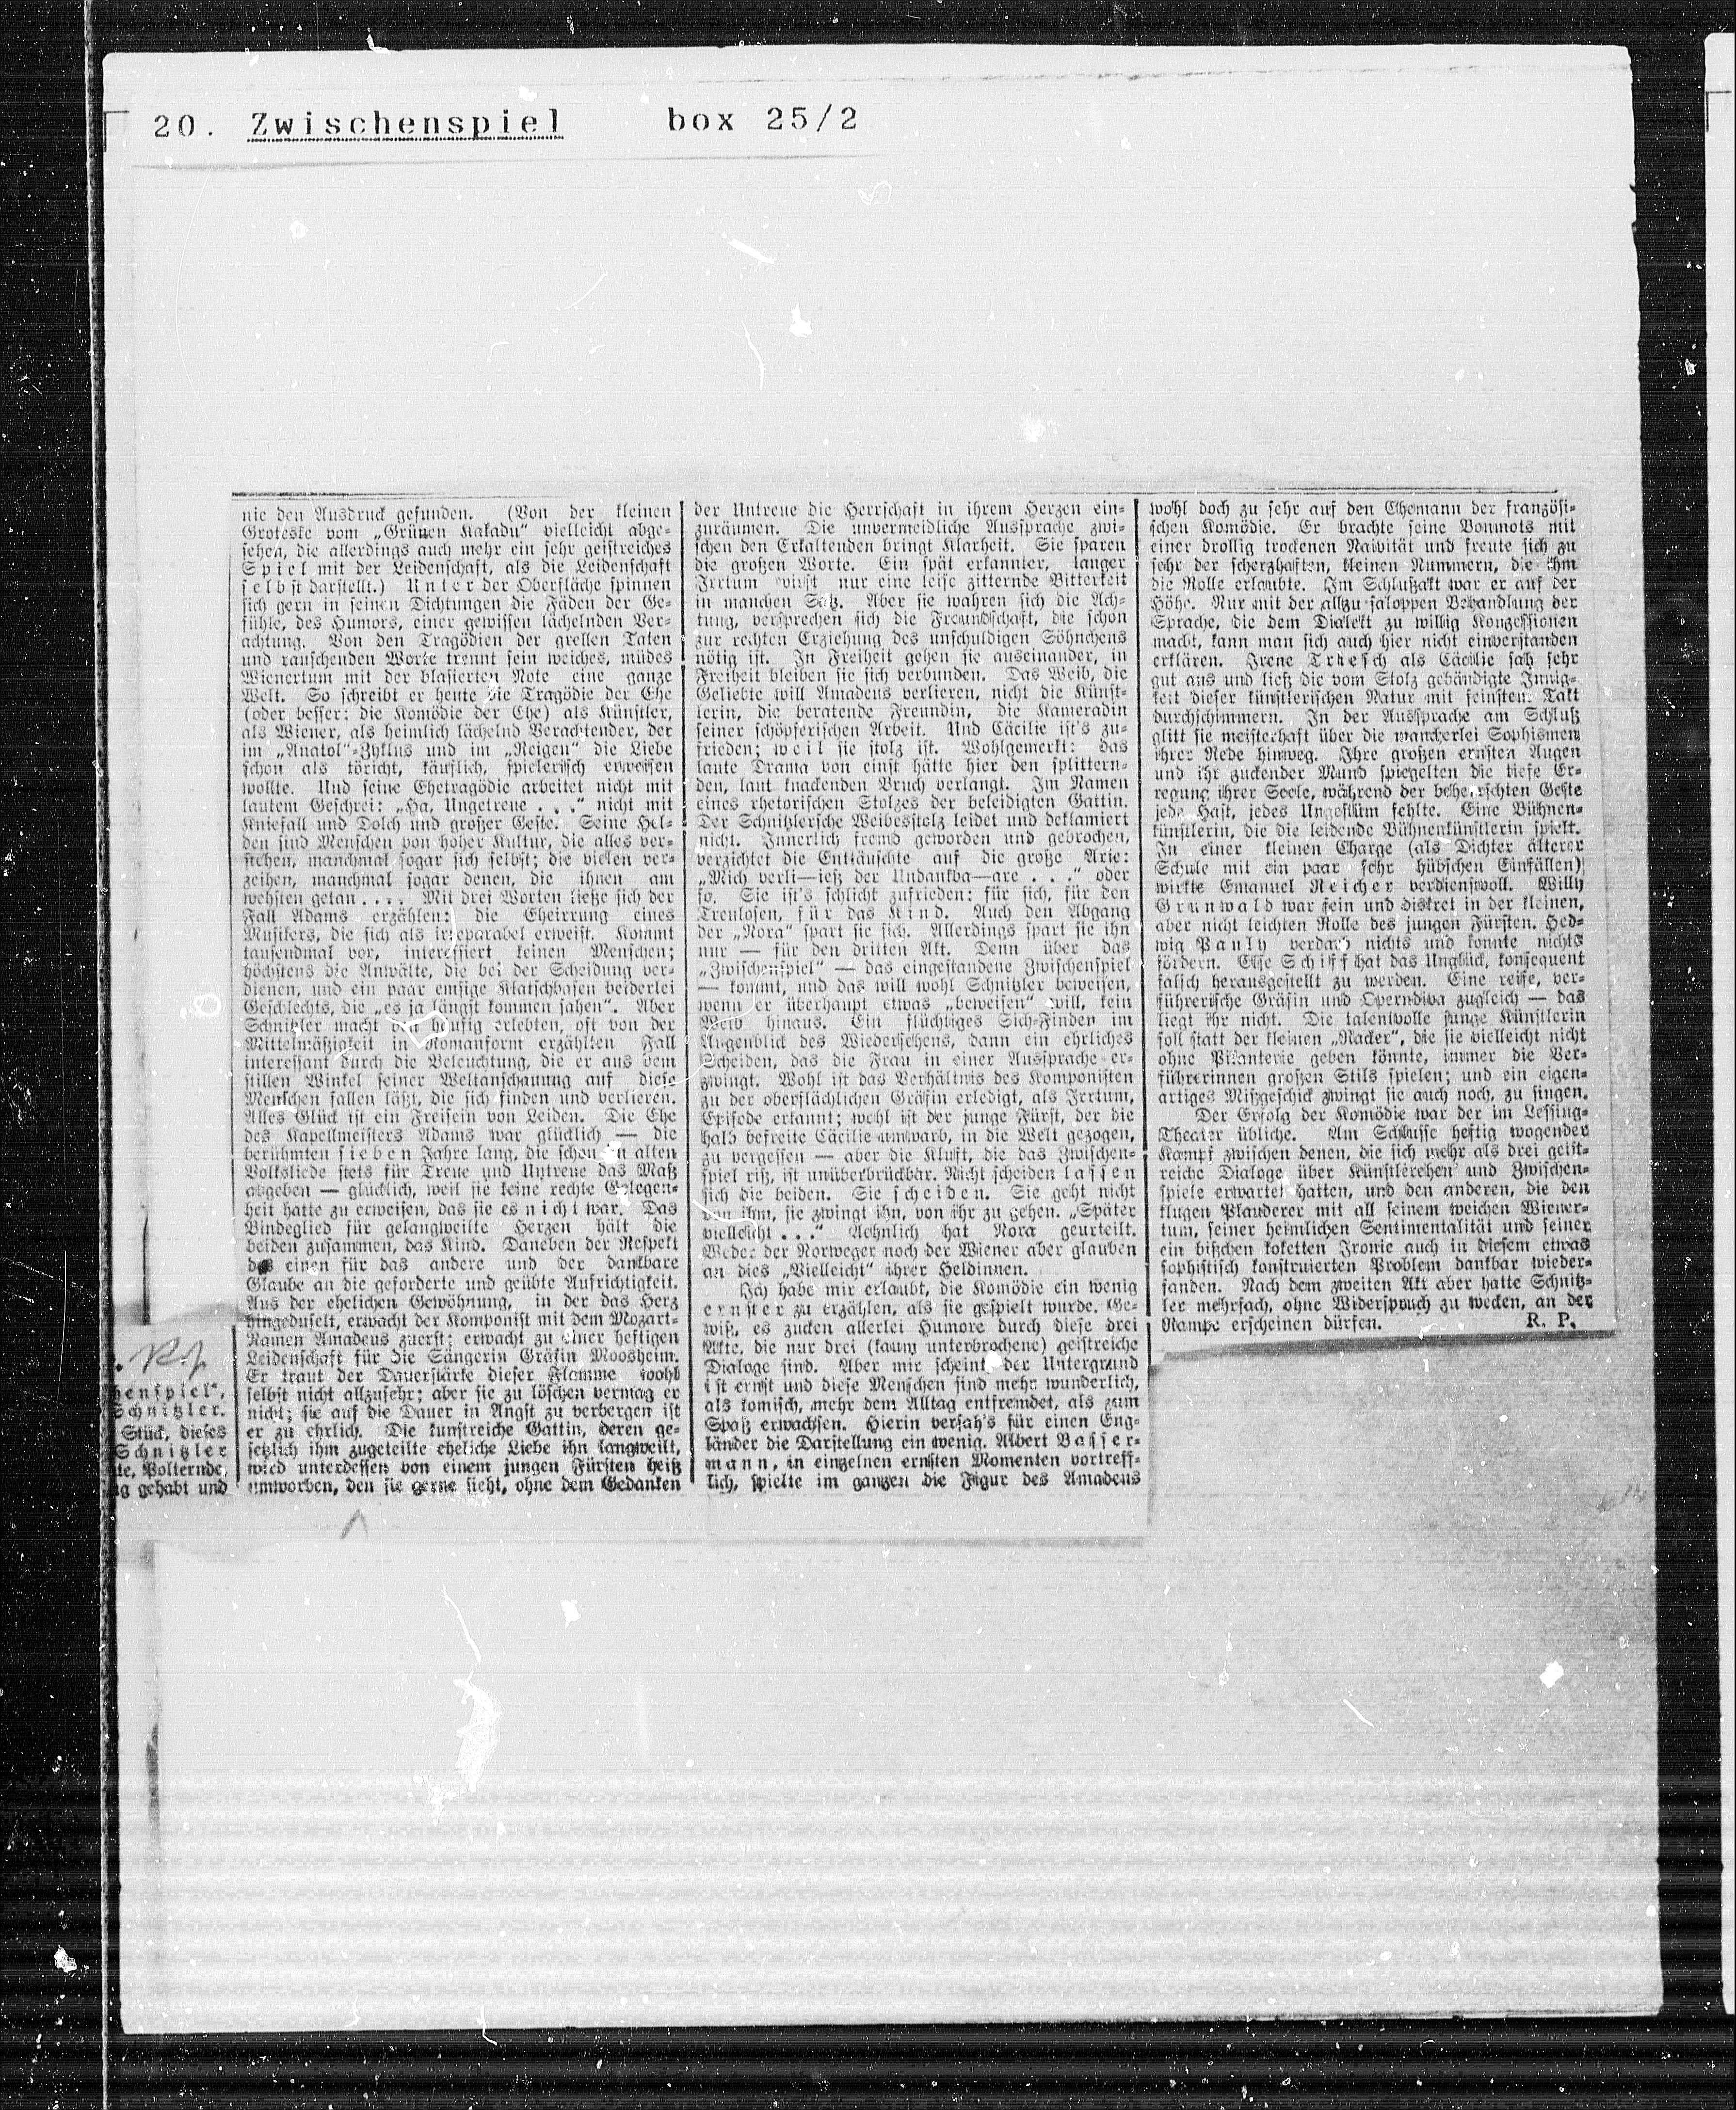 20. Zwischenspiel box 25/2
henspiel",
Schnitzler.
Stück, dieses
Schnitzler
te, Polternde,
ig gehabt und
nie den Ausdruck gefunden. (Von der kleinen
Groteske vom „Grünen Kakadu" vielleicht abge-
sehen, die allerdings auch mehr ein sehr geistreiches
Spiel mit der Leidenschaft, als die Leidenschaft
selbst darstellt.) Unter der Oberfläche spinnen
sich gern in seinen Dichtungen die Fäden der Ge-
fühle, des Humors, einer gewissen lächelnden Ver-
achtung. Von den Tragödien der grellen Taten
und rauschenden Worte trennt sein weiches, müdes
Wienertum mit der blasierten Note eine ganze
Welt. So schreibt er heute die Tragödie der Ehe
(oder besser: die Komödie der Ehe) als Künstler,
als Wiener, als heimlich lächelnd Verachtender, der
im „Anatol"-Zyklus und im „Reigen" die Liebe
schon als töricht, käuflich, spielerisch erweisen
wollte. Und seine Ehetragödie arbeitet nicht mit
lautem Geschrei: „Ha, Ungetreue . . ." nicht mit
Kniefall und Dolch und großer Geste. Seine Hel-
den sind Menschen von hoher Kultur, die alles ver-
stehen, manchmal sogar sich selbst; die vielen ver-
zeihen, manchmal sogar denen, die ihnen am
wehsten getan . . . . Mit drei Worten ließe sich der
Fall Adams erzählen: die Eheirrung eines
Musikers, die sich als irreparabel erweist. Kommt
tausendmal vor, interessiert keinen Menschen;
höchstens die Anwälte, die bei der Scheidung ver-
dienen, und ein paar emsige Klatschbasen beiderlei
Geschlechts, die „es ja längst kommen sahen". Aber
Schnitzler macht den häufig erlebten, oft von der
Mittelmäßigkeit in Romanform erzählten Fall
interessant durch die Beleuchtung, die er aus dem
stillen Winkel seiner Weltanschauung auf diese
Menschen fallen läßt, die sich finden und verlieren.
Alles Glück ist ein Freisein von Leiden. Die Ehe
des Kapellmeisters Adams war glücklich — die
berühmten sieben Jahre lang, die schon in alten
Volksliede stets für Treue und Untreue das Maß
abgeben — glücklich, weil sie keine rechte Gelegen-
heit hatte zu erweisen, das sie es nicht war. Das
Bindeglied für gelangweilte Herzen hält die
beiden zusammen, das Kind. Daneben der Respekt
des einen für das andere und der dankbare
Glaube an die geforderte und geübte Aufrichtigkeit.
Aus der ehelichen Gewöhnung, in der das Herz
hingeduselt, erwacht der Komponist mit dem Mozart-
Namen Amadeus zuerst; erwacht zu einer heftigen
Leidenschaft für die Sängerin Gräfin Moosheim.
Er traut der Dauerstärke dieser Flamme wohl
selbst nicht allzusehr; aber sie zu löschen vermag er
nicht; sie auf die Dauer in Angst zu verbergen ist
er zu ehrlich. Die kunstreiche Gattin, deren ge-
setzlich ihm zugeteilte eheliche Liebe ihn langweilt,
wird unterdessen von einem jungen Fürsten heiß
umworben, den sie gerne sieht, ohne dem Gedanken
der Untreue die Herrschaft in ihrem Herzen ein-
zuräumen. Die unvermeidliche Aussprache zwi-
schen den Erkaltenden bringt Klarheit. Sie sparen
die großen Worte. Ein spät erkannter, langer
Irrtum wirft nur eine leise zitternde Bitterkeit
in manchen Satz. Aber sie wahren sich die Ach-
tung, versprechen sich die Freundschaft, die schon
zur rechten Erziehung des unschuldigen Söhnchens
nötig ist. In Freiheit gehen sie auseinander, in
Freiheit bleiben sie sich verbunden. Das Weib, die
Geliebte will Amadeus verlieren, nicht die Künst-
lerin, die beratende Freundin, die Kameradin
seiner schöpferischen Arbeit. Und Cäcilie ist's zu-
frieden; weil sie stolz ist. Wohlgemerkt: das
laute Drama von einst hätte hier den splittern-
den, laut knackenden Bruch verlangt. Im Namen
eines rhetorischen Stolzes der beleidigten Gattin.
Der Schnitzlersche Weibesstolz leidet und deklamiert
nicht. Innerlich fremd geworden und gebrochen,
verzichtet die Enttäuschte auf die große Arie:
„Mich verli—ieß der Undankba—are . . ." oder
so. Sie ist's schlicht zufrieden: für sich, für den
Treulosen, für das Kind. Auch den Abgang
der „Nora" spart sie sich. Allerdings spart sie ihn
nur — für den dritten Akt. Denn über das
„Zwischenspiel" — das eingestandene Zwischenspiel
— kommt, und das will wohl Schnitzler beweisen,
wenn er überhaupt etwas „beweisen" will, kein
Weib hinaus. Ein flüchtiges Sich-Finden im
Augenblick des Wiedersehens, dann ein ehrliches
Scheiden, das die Frau in einer Aussprache er-
zwingt. Wohl ist das Verhältnis des Komponisten
zu der oberflächlichen Gräfin erledigt, als Irrtum,
Episode erkannt; wohl ist der junge Fürst, der die
halb befreite Cäcilie umwarb, in die Welt gezogen,
zu vergessen — aber die Kluft, die das Zwischen-
spiel riß, ist unüberbrückbar. Nicht scheiden lassen
sich die beiden. Sie scheiden. Sie geht nicht
von ihm, sie zwingt ihn, von ihr zu gehen. „Später
vielleicht . . ." Aehnlich hat Nora geurteilt.
Weder der Norweger noch der Wiener aber glauben
an dies „Vielleicht" ihrer Heldinnen.
Ich habe mir erlaubt, die Komödie ein wenig
ernster zu erzählen, als sie gespielt wurde. Ge-
wiß, es zucken allerlei Humore durch diese drei
Akte, die nur drei (kaum unterbrochene) geistreiche
Dialoge sind. Aber mir scheint, der Untergrund
ist ernst und diese Menschen sind mehr wunderlich,
als komisch, mehr dem Alltag entfremdet, als zum
Spaß erwachsen. Hierin versah's für einen Eng-
länder die Darstellung ein wenig. Albert Basser-
mann, in einzelnen ernsten Momenten vortreff-
lich, spielte im ganzen die Figur des Amadeus
wohl doch zu sehr auf den Ehemann der französi-
schen Komödie. Er brachte seine Bonmots mit
einer drollig trockenen Naivität und freute sich zu
sehr der scherzhaften, kleinen Nummern, die ihm
die Rolle erlaubte. Im Schlußakt war er auf der
Höhe. Nur mit der allzu saloppen Behandlung der
Sprache, die dem Dialekt zu willig Konzessionen
macht, kann man sich auch hier nicht einverstanden
erklären. Irene Triesch als Cäcilie sah sehr
gut aus und ließ die vom Stolz gebändigte Innig-
keit dieser künstlerischen Natur mit feinsten Takt
durchschimmern. In der Aussprache am Schluß
glitt sie meisterhaft über die mancherlei Sophismen
ihrer Rede hinweg. Ihre großen ernsten Augen
und ihr zuckender Mund spiegelten die tiefe Er-
regung ihrer Seele, während der beherrschten Geste
jede Hast, jedes Ungestüm fehlte. Eine Bühnen-
künstlerin, die die leidende Bühnenkünstlerin spielt.
In einer kleinen Charge (als Dichter älterer
Schule mit ein paar sehr hübschen Einfällen)
wirkte Emanuel Reicher verdienstvoll. Willy
Grunwald war fein und diskret in der kleinen,
aber nicht leichten Rolle des jungen Fürsten. Hed-
wig Pauly verdarb nichts und konnte nichts
fördern. Else Schiff hat das Unglück, konsequent
falsch herausgestellt zu werden. Eine reife, ver-
führerische Gräfin und Operndiva zugleich — das
liegt ihr nicht. Die talentvolle junge Künstlerin
soll statt der kleinen „Racker", die sie vielleicht nicht
ohne Pikanterie geben könnte, immer die Ver-
führerinnen großen Stils spielen; und ein eigen-
artiges Mißgeschick zwingt sie auch noch, zu singen.
Der Erfolg der Komödie war der im Lessing-
Theater übliche. Am Schlusse heftig wogender
Kampf zwischen denen, die sich mehr als drei geist-
reiche Dialoge über Künstlerehen und Zwischen-
spiele erwartet hatten, und den anderen, die den
klugen Plauderer mit all seinem weichen Wiener-
tum, seiner heimlichen Sentimentalität und seiner
ein bißchen koketten Ironie auch in diesem etwas
sophistisch konstruierten Problem dankbar wieder-
fanden. Nach dem zweiten Akt aber hatte Schnitz-
ler mehrfach, ohne Widerspruch zu wecken, an der
Rampe erscheinen dürfen. R. P.